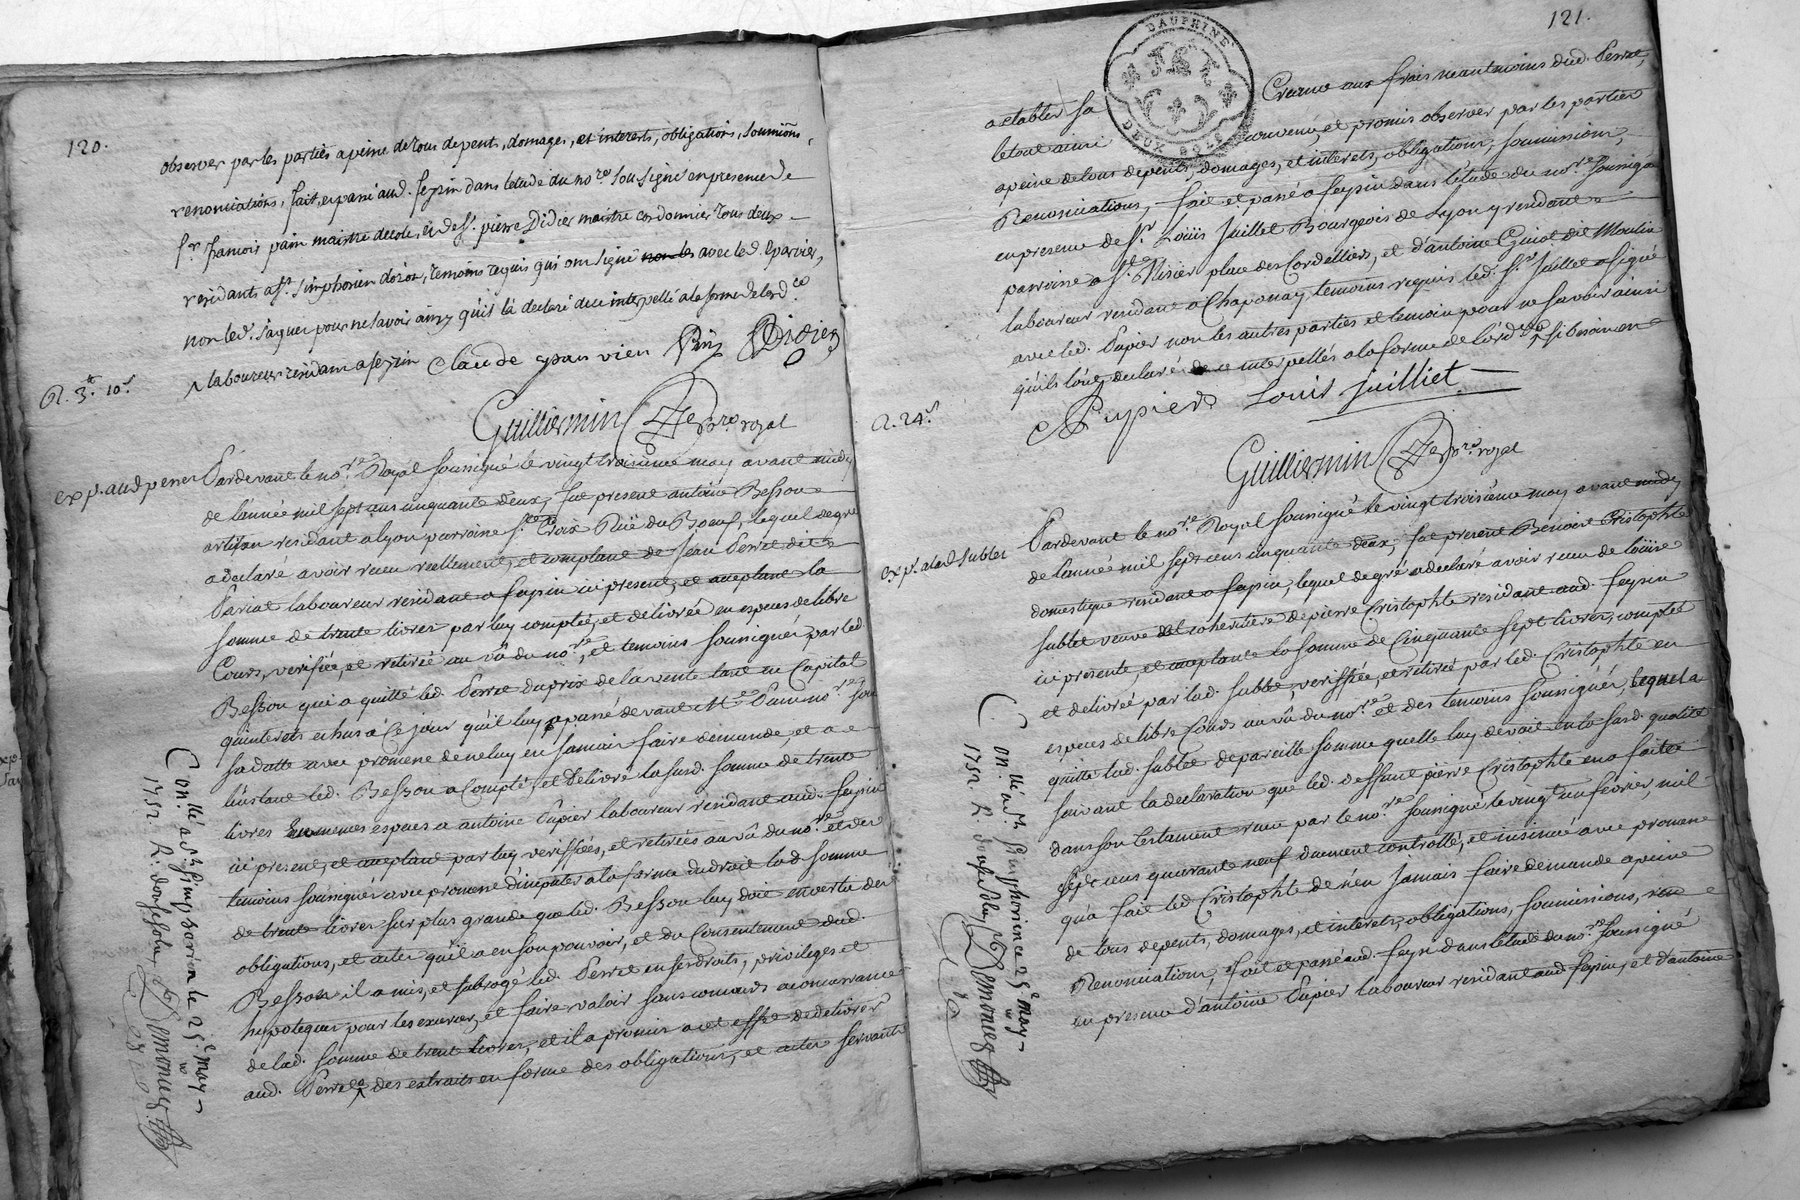 120.
observer par les parties a peine de tous depents, domages, et interets, obligations, soumi͠ons,
renonciations, fait, et passé aud. feysin dans l'etude du no.re sousigné en presence de
s.r francois pain maitre decole, et de s.r pierre Didier maitre cordonnier tous deux
residants a s.t simphorien dozon, temoins requis qui ont signé non les avec led. parties,
non led. jaques pour ne savoir ainsy qu'il la declaré de ce interpellé a la forme de lord.ce
laboureur residant a feyzin Claude Pain Didier
R. 3.tt 10.s
Guilliermin No.re royal
exp.é aud perret
Pardevant le no.re Royal sousigné le vingt troisieme may avant midy
de l'année mil sept cens cinquante deux, fut present antoine Besson
artisan residant a lyon parroisse s.te Croix Ruë du Bœuf, lequel de gré
a declaré avoir receu reellement, et comptant de Jean Perret dit
Pariat laboureur residant a feysin ici present, et acceptant la
somme de trente livres par luy comptée, et delivrée en especes de libre
Cours, verifiée, et retirée au vû du no.re, et temoins sousignés par led.
Besson qui a quitté led. Perret du prix de la vente tant en Capital
qu'interets echus a ce jour qu'il luy a passé devant M.e Pain no.re sous
sa datte avec promesse de ne luy en jamais faire demande, et a
l'instant led. Besson a Compté, et delivré la susd. somme de trente
livres en memes especes a antoine Papier laboureur residant aud. feysin
ici present, et acceptant par luy veriffiées, et retirées au vû du no.re et des
temoins sousignés avec promesse d'imputer a la forme du droit lad. somme
de trente livres sur plus grande que led. Besson luy doit en vertu des
obligations, et actes qu'il a en son pouvoir, et du Consentement dud.
Besson il a mis, et subrogé led. Perret en ses droits, privileges et
hypoteques pour les exercer, et faire valoir sans concours a concurrance
de lad. somme de trente livres, et il a promis a cet effet de delivrer
aud. Perret des extraits en forme des obligations, et actes servants
Con.llé a s.t simphorien le 25.e may
1752. R. douse sols
121.
DAUPHINE
DEUX SOLS
a etablir sa Creance aux frais neantmoins dud. Perret,
le tout ainsi convenu, et promis observer par les parties
a peine de tous depents, domages, et interets, obligations, soumissions,
Renonciations, fait et passé a feysin dans l'etude du no.re sousigné
en presence de s.r Loüis Juillet Bourgeois de Lyon y residant
parroisse s.t Nisier place des Cordelliers, et d'antoine Guiot dit Moulin
laboureur residant a Chaponay, temoins requis led. s.r Juillet a signé
avec led. Papier non les autres parties et temoin pour ne savoir ainsi
qu'ils l'ont declaré de ce interpellés a la forme de l'ord.ce si besoin en
Louis juilliet
R. 24.s
Guilliermin No.re royal
exp.é alad Sublet
Pardevant le no.re Royal sousigné le vingt troisieme may avant midy
de l'année mil sept cens cinquante deux, fut present Benoist Cristophle
domestique residant a feysin, lequel de gré a declaré avoir receu de loüise
Sublet veuve et coheritiere de pierre Cristophle residant aud. feysin
ici presente, et acceptante la somme de Cinquante sept livres, comptés
et delivrée par lad. Sublet, veriffiée, et retirée par led. Cristophle en
especes de libre Cours au vû du no.re et des temoins sousignés, lequel a
quitté lad. Sublet de pareille somme quelle luy devoit en sa susd. qualité
suivant la declaration que led. deffunt pierre Cristophle en a faitte
dans son testament receu par le no.re sousigné le vingt un fevrier, mil
sept cens quarante neuf duement controllé, et insinué avec promesse
qu'a fait led Cristophle de n'en jamais faire demande a peine
de tous depents, domages, et interets, obligations, soumissions,
Renonciations, fait et passé aud. feysin dans letude du no.re sousigné
en presence d'antoine Papier laboureur residant aud feysin, et d'antoine
Con.llé a s.t simphorien ce 25.e may
1752. R. douse sols